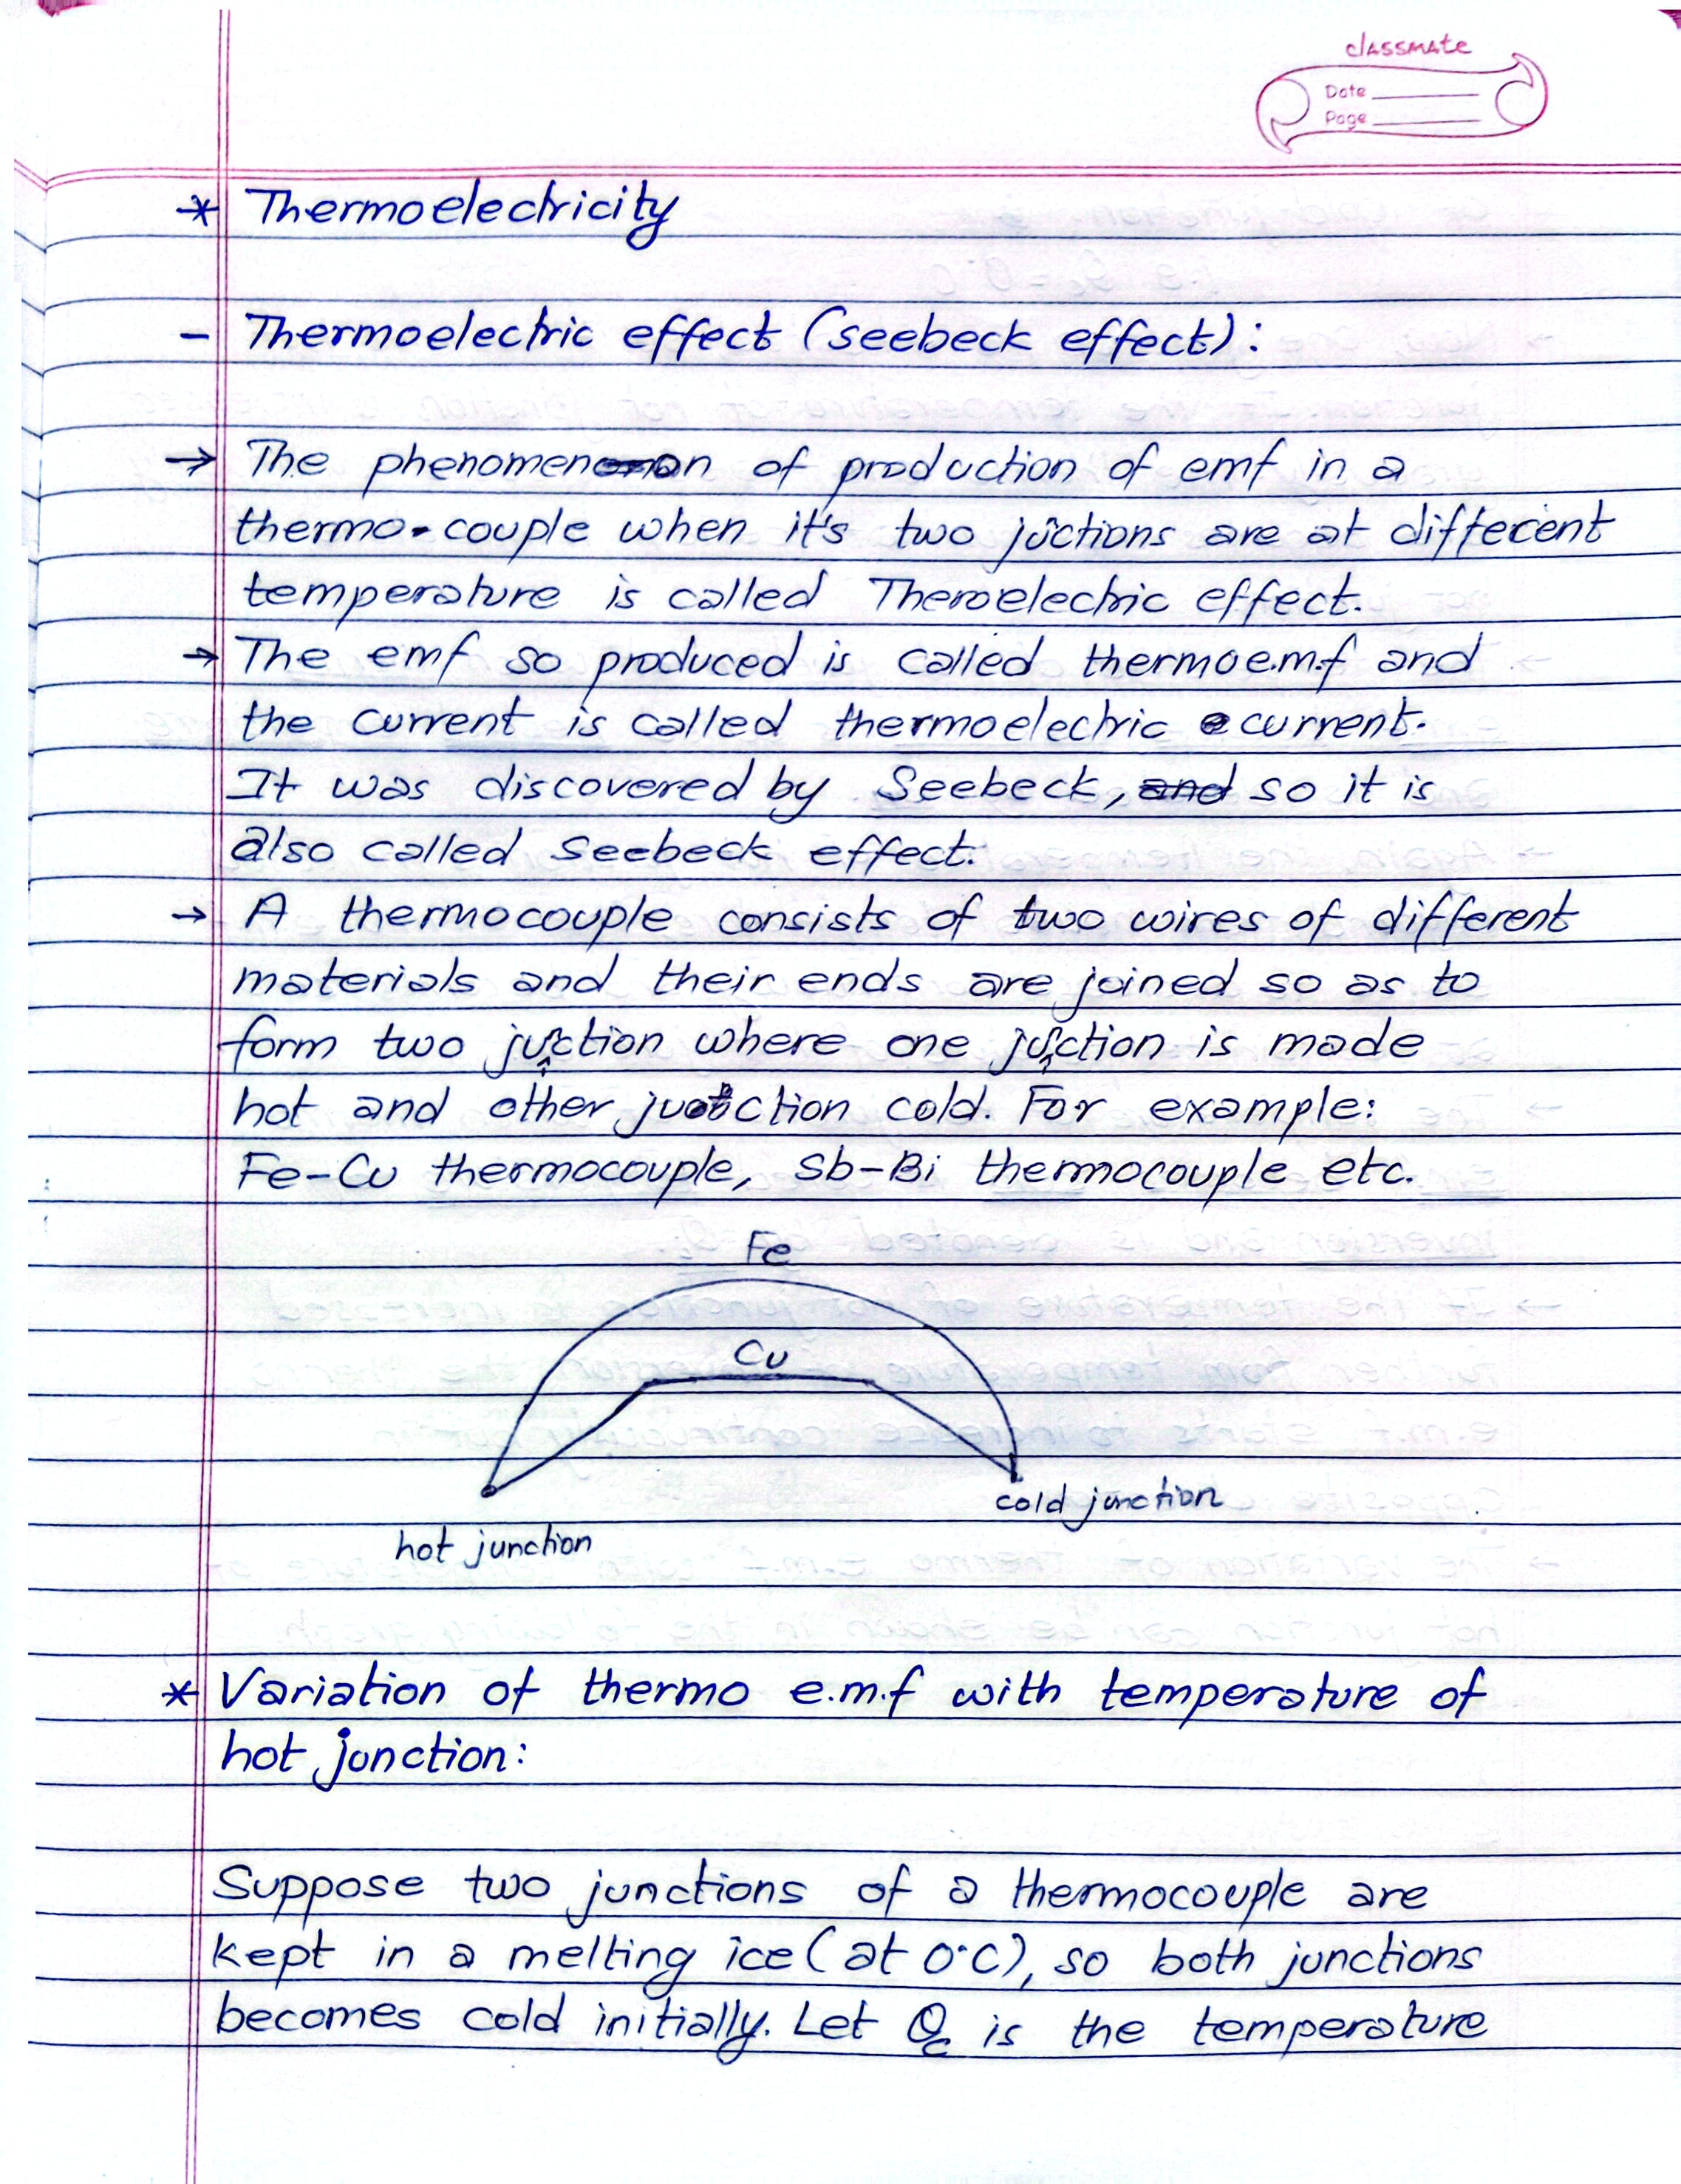 classmate
Date
Page
* Thermoelectricity
- Thermoelectric effect (seebeck effect):
→ The phenomenon of production of emf in a
thermo-couple when it's two juctions are at different
temperature is called Theroelectric effect.
→ The emf so produced is called thermoe.m.f and
the current is called thermoelectric current.
It was discovered by Seebeck, and so it is
also called Seebeck effect.
→ A thermocouple consists of two wires of different
materials and their ends are joined so as to
form two juction where one juction is made
hot and other juction cold. For example:
Fe-Cu thermocouple, Sb-Bi thermocouple etc.
Fe
Cu
cold junction
hot junction
* Variation of thermo e.m.f with temperature of
hot junction:
Suppose two junctions of a thermocouple are
kept in a melting ice (at 0°C), so both junctions
becomes cold initially. Let θc is the temperature